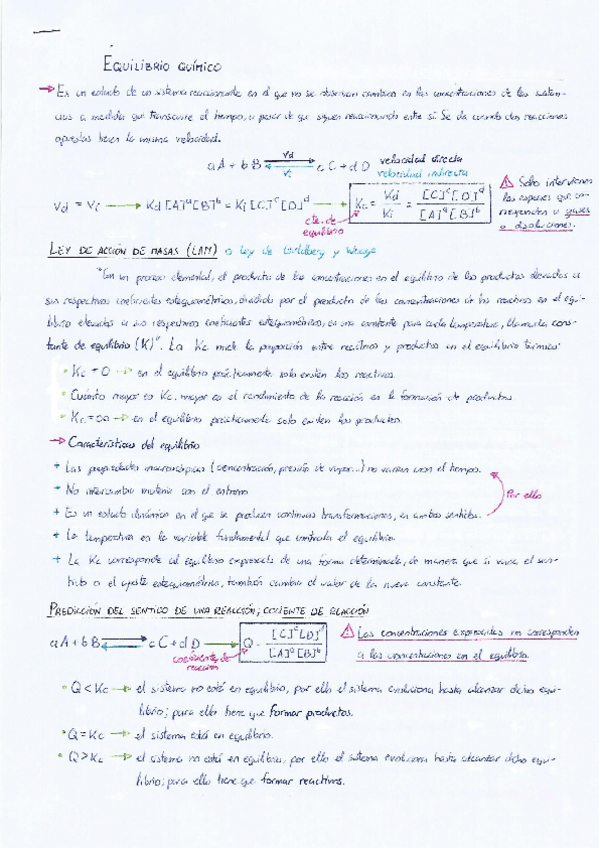 EQUILIBRIO QUÍMICO
→ Es un estado de un sistema reaccionante en el que no se observan cambios en las concentraciones de las sustan-
cias a medida que transcurre el tiempo, a pesar de que siguen reaccionando entre sí. Se da cuando dos reacciones
opuestas tienen la misma velocidad.
aA + bB ⇄ cC + dD
Vd
Vi
velocidad directa
velocidad indirecta
Vd = Vi → Kd [A]ᵃ[B]ᵇ = Ki [C]ᶜ[D]ᵈ → Kc = Kd/Ki = [C]ᶜ[D]ᵈ / [A]ᵃ[B]ᵇ
cte. de
equilibrio
⚠ Solo intervienen
las especies que co-
rrespondan a gases
o disoluciones.
LEY DE ACCIÓN DE MASAS (LAM) o Ley de Guldberg y Waage
"En un proceso elemental, el producto de las concentraciones en el equilibrio de los productos elevadas a
sus respectivos coeficientes estequiométricos, dividido por el producto de las concentraciones de los reactivos en el equi-
librio elevadas a sus respectivos coeficientes estequiométricos, es una constante para cada temperatura, llamada cons-
tante de equilibrio (K)". La Kc mide la proporción entre reactivos y productos en el equilibrio térmico:
• Kc = 0 → en el equilibrio prácticamente solo existen los reactivos.
• Cuánto mayor es Kc, mayor es el rendimiento de la reacción en la formación de productos
• Kc = ∞ → en el equilibrio prácticamente solo existen los productos.
→ Características del equilibrio
+ Las propiedades macroscópicas (concentración, presión de vapor...) no varían con el tiempo.
+ No intercambia materia con el entorno
+ Es un estado dinámico en el que se producen continuas transformaciones, en ambos sentidos.
Por ello
+ La temperatura es la variable fundamental que controla el equilibrio.
+ La Kc corresponde al equilibrio expresado de una forma determinada, de manera que si varía el sen-
tido o el ajuste estequiométrico, también cambia el valor de la nueva constante.
PREDICCIÓN DEL SENTIDO DE UNA REACCIÓN; COCIENTE DE REACCIÓN
aA + bB ⇄ cC + dD → Q = [C]ᶜ[D]ᵈ / [A]ᵃ[B]ᵇ
cociente de
reacción
⚠ Las concentraciones expresadas no corresponden
a las concentraciones en el equilibrio.
• Q < Kc → el sistema no está en equilibrio, por ello el sistema evoluciona hasta alcanzar dicho equi-
librio; para ello tiene que formar productos.
• Q = Kc → el sistema está en equilibrio.
• Q > Kc → el sistema no está en equilibrio, por ello el sistema evoluciona hasta alcanzar dicho equi-
librio; para ello tiene que formar reactivos.